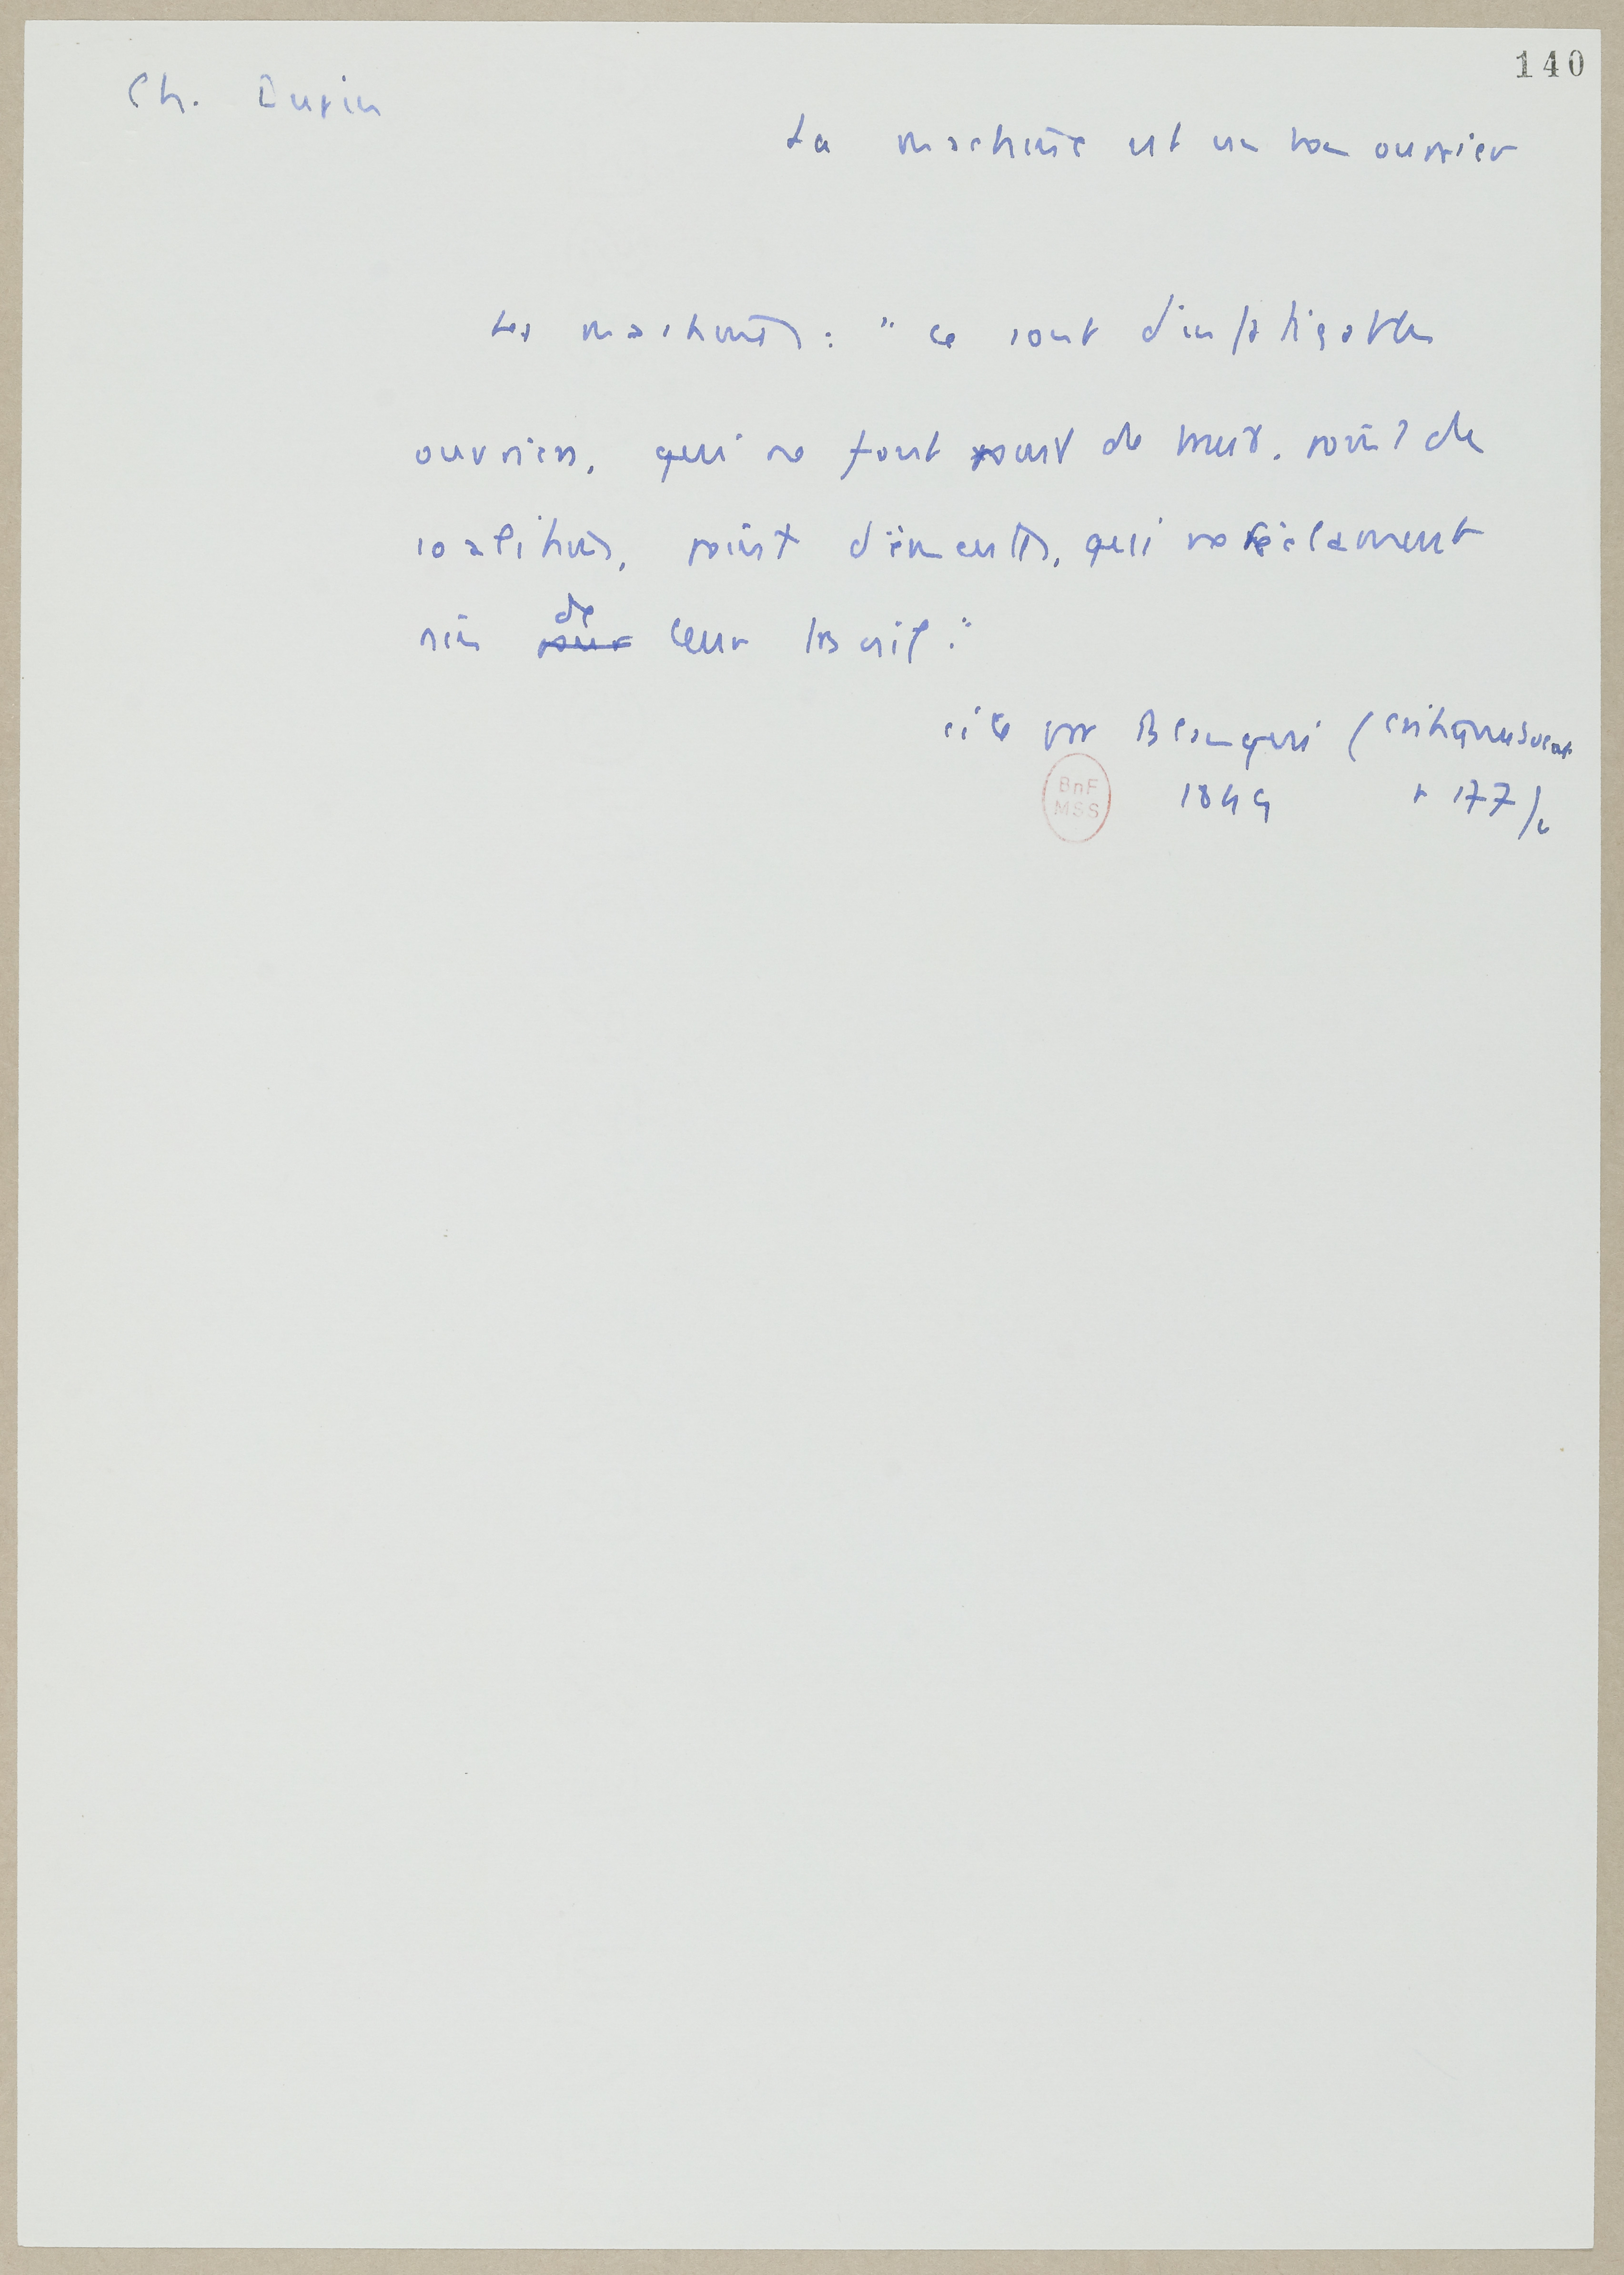 140
Ch. Dupin
La machine est un bon ouvrier
Les machines : " ce sont d'infatigables
ouvriers, qui ne font point de bruit, point de
coalitions, point d'émeutes, qui ne réclament
rien sur de leur travail."
cité par Blanqui (critique sociale
1849 p 177/
BnF
MSS